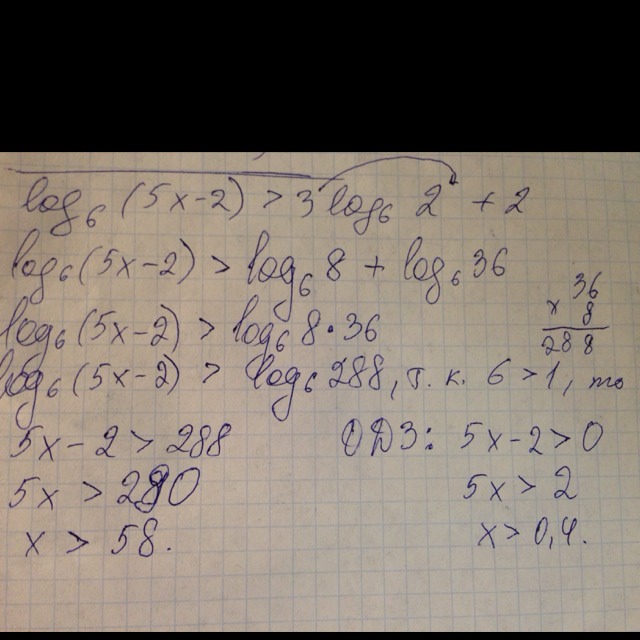 log₆ (5x-2) > 3 log₆ 2 + 2
log₆ (5x-2) > log₆ 8 + log₆ 36
36
x 8
288
log₆ (5x-2) > log₆ 8·36
log₆ (5x-2) > log₆ 288, т. к. 6 > 1, то
5x-2 > 288
5x > 290
x > 58.
ОДЗ: 5x-2 > 0
5x > 2
x > 0,4.